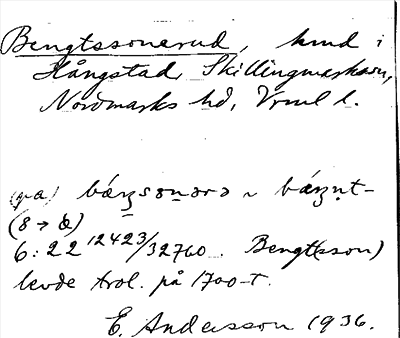 Bengtssonerud, hmd i
Hångstad, Skillingmarks sn,
Nordmarks hd, Vrml l.
(på) bæŋsonərə ~ bæŋn̥t-
(8 → œ)
6:22 12423/32760. Bengt(sson)
levde trol. på 1700-t.
E. Andersson 1936.